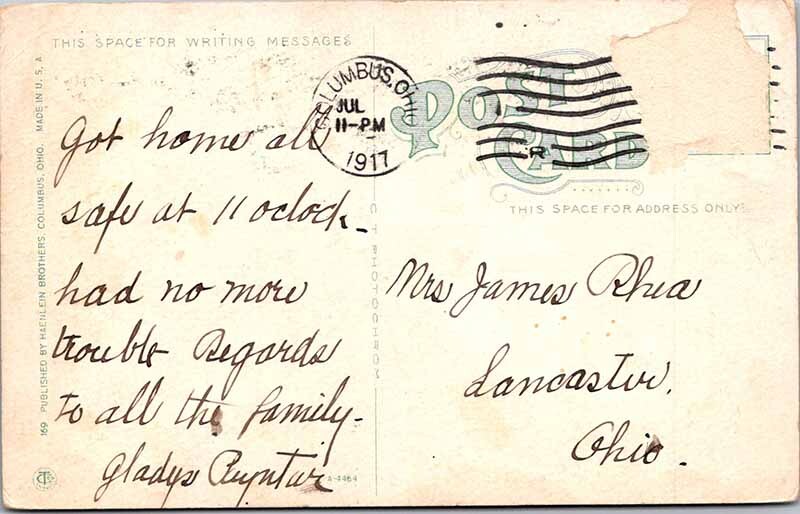 THIS SPACE FOR WRITING MESSAGES
COLUMBUS, OHIO
JUL
11-PM
1917
POST
CARD
THIS SPACE FOR ADDRESS ONLY
169 PUBLISHED BY HAENLEIN BROTHERS, COLUMBUS, OHIO. MADE IN U. S. A
Got home all
safe at 11 oclock
had no more
trouble Regards
to all the family-
Gladys
A-4464
Mrs James Rhea
Lancaster,
Ohio.